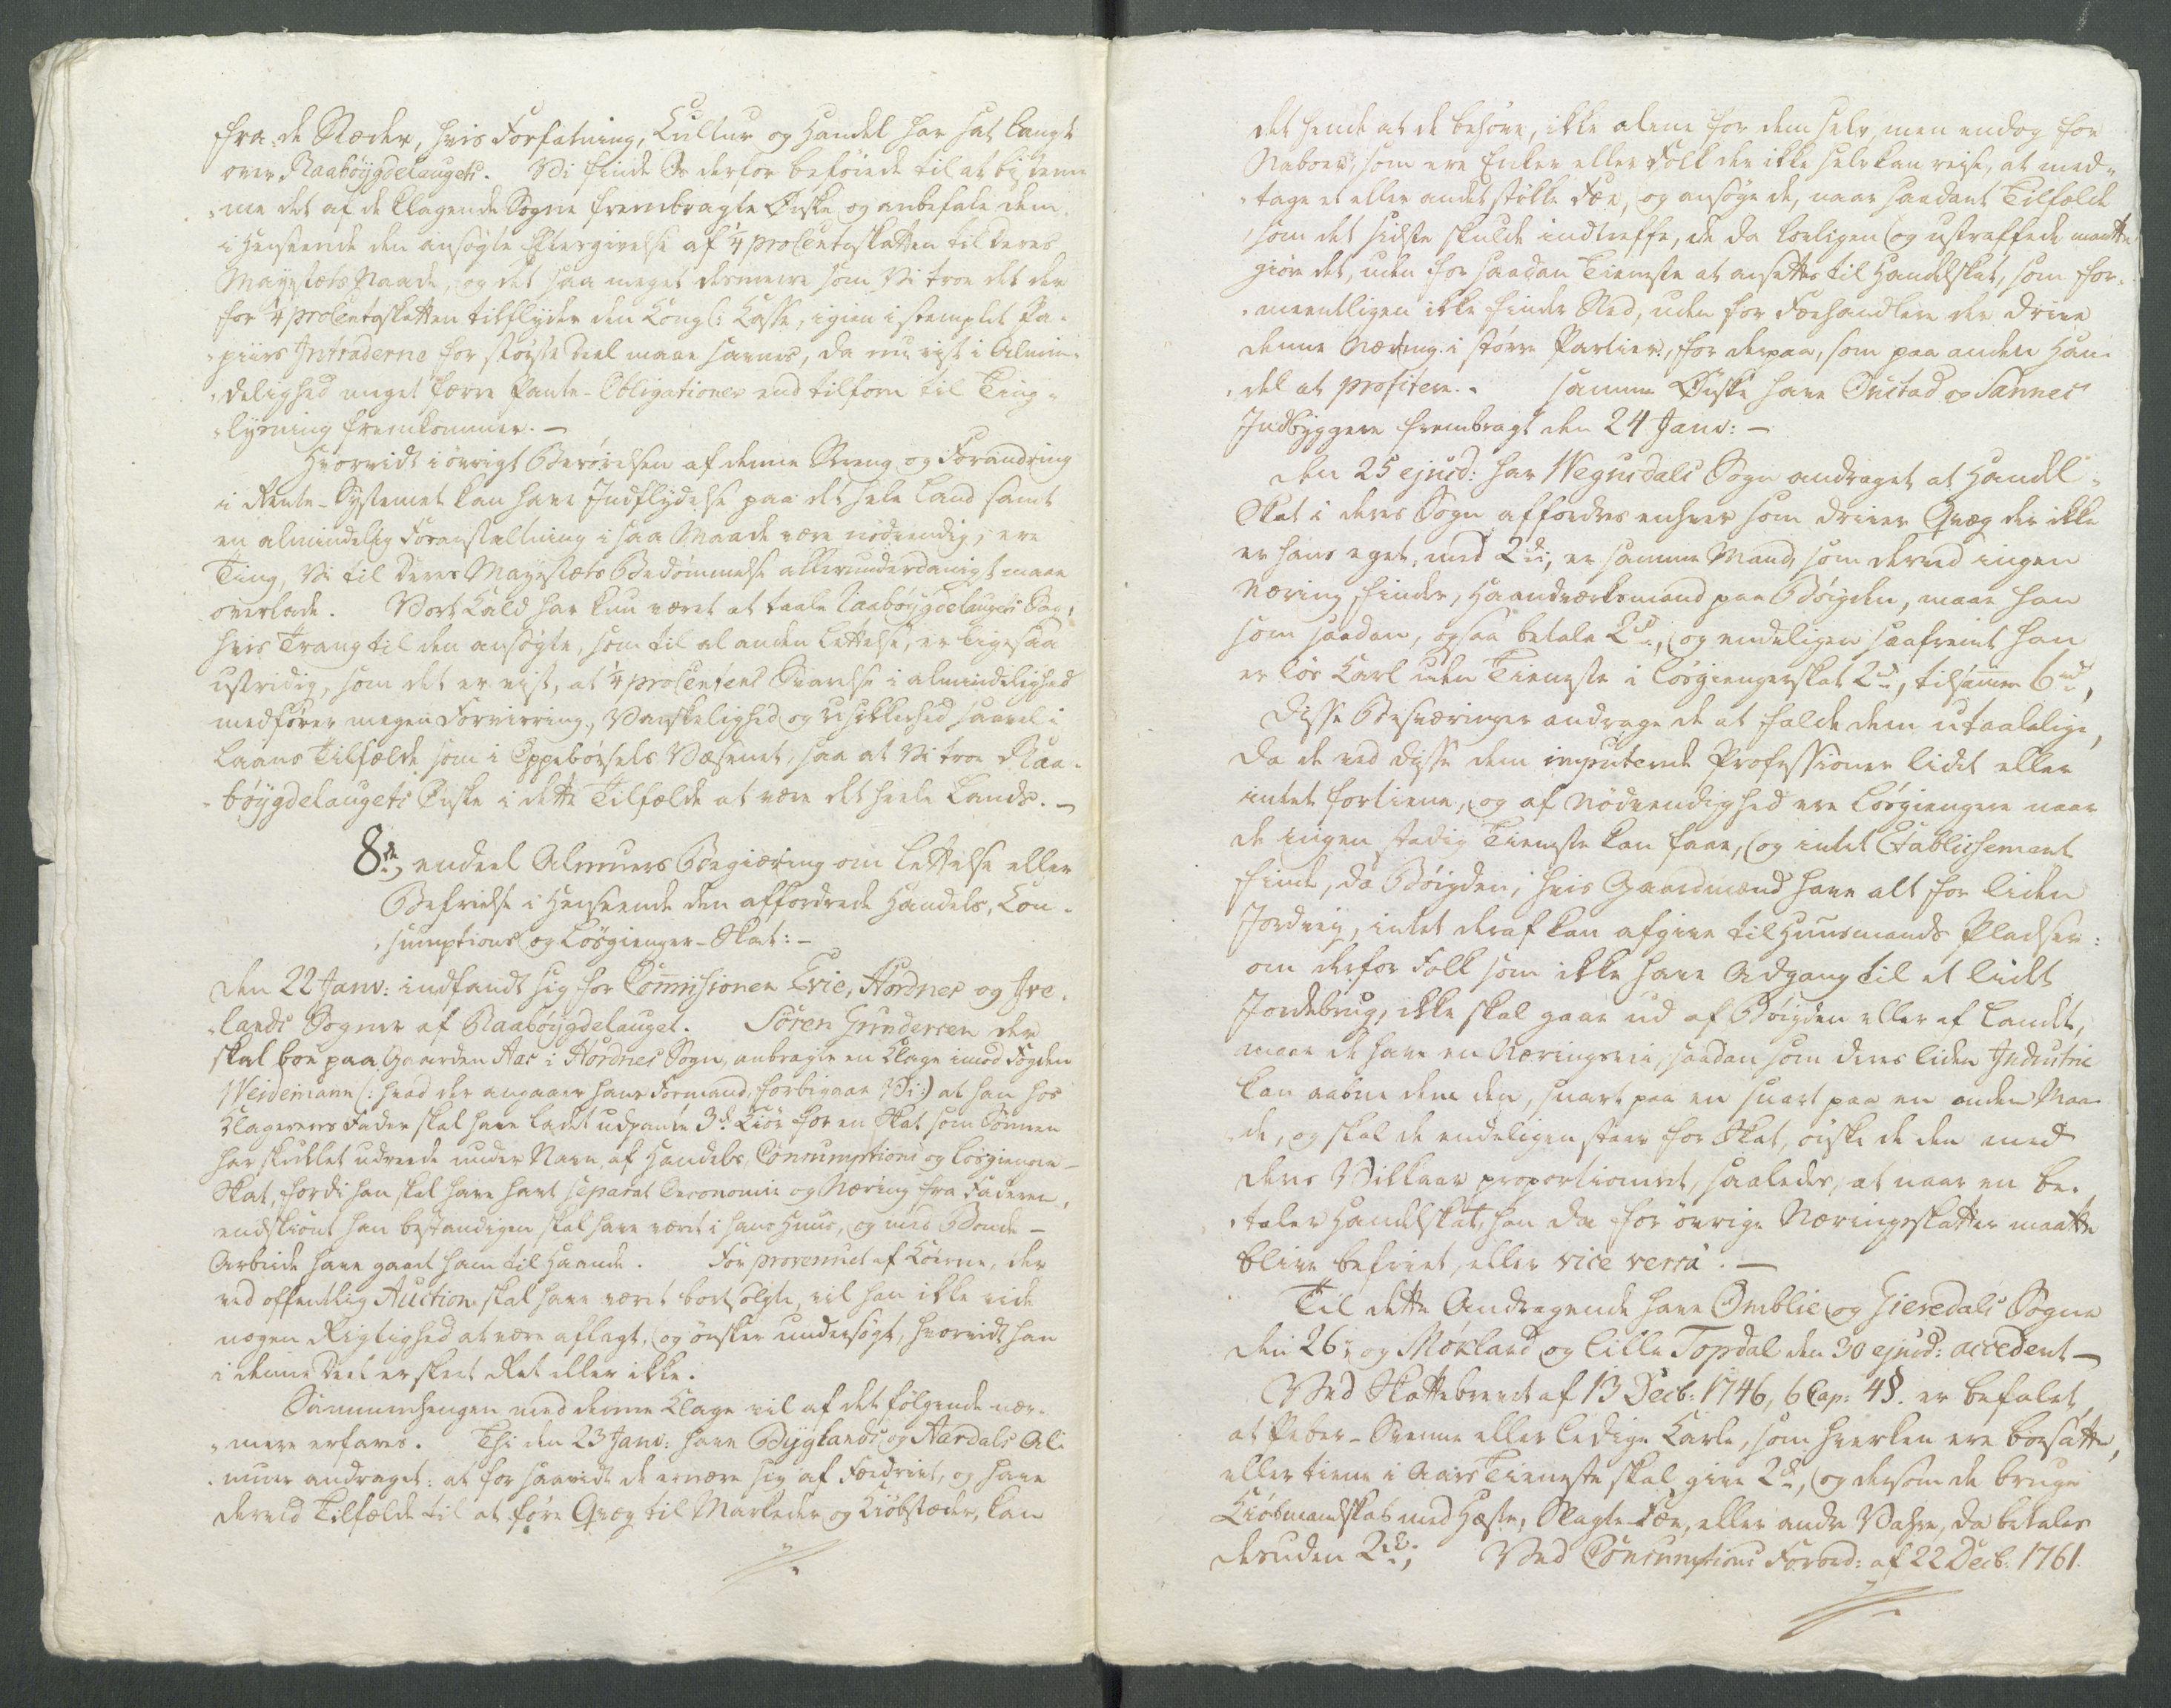 fra de Stæder, hvis Forfatning, Cultur og Handel har sat langt
over Raaböygdelauget. Vi finde Os derfor beföiede til at bistem¬
¬me det af de klagende Sogne frembragte Önske og anbefale dem
i Henseende den ansögte Eftergivelse af ¼ procentoskatten til Deres
Mayestæts Naade, og det saa meget desmere som Vi troe det der
for ¼ procentoskatten tilflyder den Kongl: Kasse, igien i stemplet Pa¬
¬piirs Intraderne for störste Deel maae savnes, da nu vist i Almin¬
¬delighed meget færre Pante-Obligationer end tilforn til Ting¬
¬lysning fremkommer. —
Hvorvidt i övrigt Berörelsen af denne Streng og Forandring
i Rente-Systemet kan have Indflydelse paa det hele Land samt
en almindelig Foranstaltning i saa Maade være nödvendig, ere
Ting, Vi til Deres Mayestæts Bedömmelse allerunderdanigst maae
overlade. Vort Kald har kun været at tale Raaböygdelaugets Sag,
hvis Trang til den ansögte, som til al anden Lettelse, er ligesaa
ustridig, som det er vist, at ¼ procentens Svarelse i almindelighed
medförer megen Forvirring, Vanskelighed og Usikkerhed saavel i
Laans Tilfælde som i Oppebörsels Væsenet, saa at Vi troe Raa¬
¬böygdelaugets Önske i dette Tilfælde at være det heele Lands. —
8de, endeel Almuers Begiæring om Lettelse eller
Befrielse i Henseende den affordrede Handels, Con¬
¬sumptions og Lösgienger-Skat: —
Den 22 Janv: indfandt sig for Commissionen Evie, Hordnes og Ive¬
¬lands Sogner af Raaböygdelauget. Sören Gundersen der
skal boe paa Gaarden Aas i Hordnes Sogn, anbragte en Klage imod Fogden
Weidemann (: hvad der angaaer hans Formand, forbigaae Vi :) at han hos
Klagerens Fader skal have ladet udpante 3de Kiör for en Skat som Sönnen
har skullet udreede under Navn af Handels, Consumptions og Lösgienger-
Skat, fordi han skal have havt separat Oeconomie og Næring fra Faderen,
endskiönt han bestandigen skal have været i hans Huus, og med Bonde-
Arbeide have gaaet ham til Haande. For provenuet af Kiörne, der
ved offentlig Auction skal have været bortsolgte, vil han ikke vide
nogen Rigtighed at være aflagt, og önsker undersögt, hvorvidt han
i denne Deel er skeet Ret eller ikke.
Sammenhengen med denne Klage vil af det fölgende nær¬
¬mere erfares. Thi den 23 Janv: have Byglands og Aardals Al¬
¬muer andraget: at for saavidt de ernære sig af Fædrivt, og have
derved Tilfælde til at före Qvæg til Markeder og Kiöbstæder, kan
det hende at de behöve, ikke alene for dem selv, men endog for
Naboer, som ere Enker eller Folk der ikke selv kan reise, at med¬
¬tage et eller andet stökke Fæe, og ansöge de, naar saadant Tilfælde
som det sidste skulde indtreffe, de da lovligen og ustraffede maatte
giöre det, uden for saadan Tieneste at ansættes til Handelskat, som for¬
¬meentligen ikke finder Sted, uden for Fæehandlere der drive
denne Næring i större Partier, for derpaa, som paa anden Han¬
¬del at profitere. Samme Önske have Önstad og Sannes
Indbyggere frembragt den 24 Janv: —
Den 25 ejusd: har Wegusdals Sogn andraget at Handel-
Skat i deres Sogn affordres enhver som driver Qvæg der ikke
er hans eget, med 2rd:, er samme Mand, som derved ingen
Næring finder, Haandværksmand paa Böigden, maae han
som saadan, ogsaa betale 2rd:, og endeligen saafremt han
er lös Karl uden Tieneste i Lösgiengerskat 2rd, tilsammen 6rd,
Disse Besværinger andrage de at falde dem utaalelige,
da de ved disse dem imputerede Professioner lidet eller
intet fortiene, og af Nödvendighed ere Lösgiengere naar
de ingen stadig Tieneste kan faae, og intet Etablissement
finde, da Böigden, hvis Gaardmænd have alt for liden
Jordvej, intet deraf kan afgive til Huusmands Pladser:
om derfor Folk som ikke have Adgang til et lidet
Jordebrug, ikke skal gaae ud af Böigden eller af Landet,
maae de have en Næringsvei, saadan som deres liden Industrie
kan aabne dem den, snart paa en snart paa en anden Maa¬
¬de, og skal de endeligen svare for Skat, önske de den med
deres Villkaar proportioneret, saaledes, at naar en be¬
¬taler Handelskat, han da for övrige Næringsskatter maatte
blive befriet, eller vice versa. —
Til dette Andragende have Omblie og Giervedals Sogne
den 26de og Mökland og lille Topdal den 30 ejusd: accederet —
Ved Skattebrevet af 13 Decb: 1746, 6 Cap: 4 §. er befalet,
at Peber-Svenne eller ledige Karle, som hverken ere bosatte,
eller tiene i Aars Tieneste skal give 2rd, og dersom de bruge
Kiöbmandskab med Heste, Slagte-Fæe, eller andre Vahre, da betales
desuden 2rd; Ved Consumptions Forord: af 22 Decb: 1761.